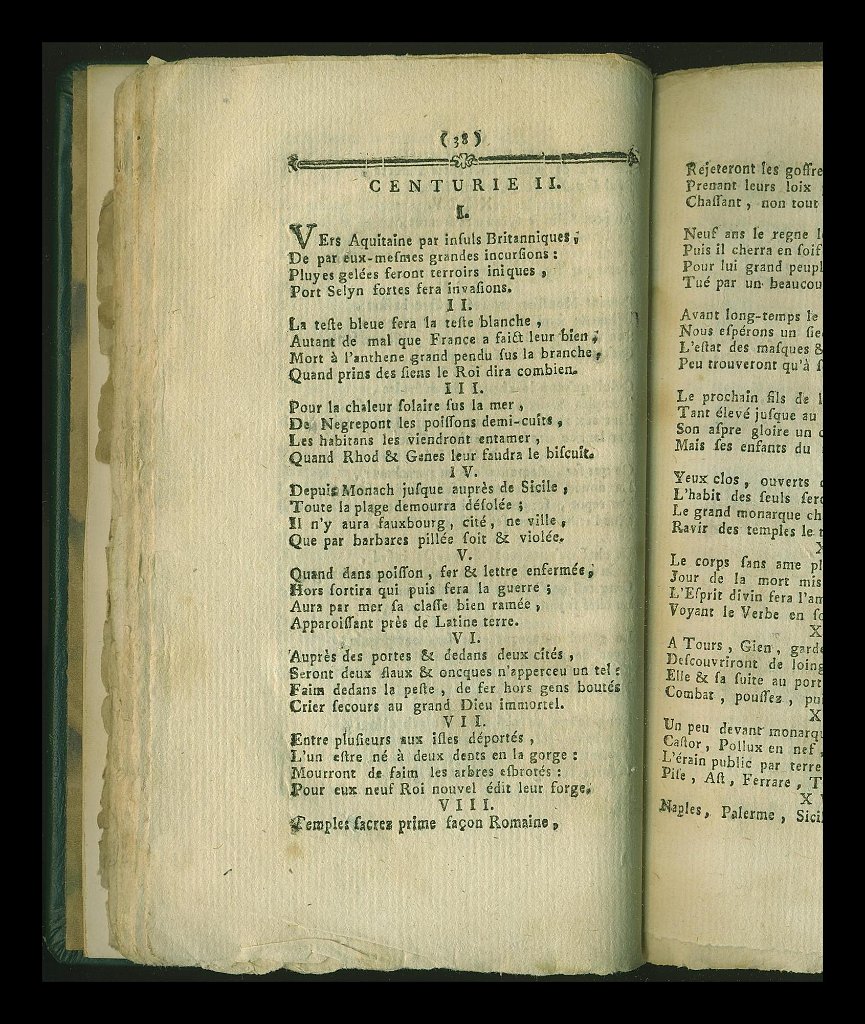 (38)
CENTURIE II.
I.
VErs Aquitaine par insuls Britanniques,
De par eux-mesmes grandes incursions :
Pluyes gelées feront terroirs iniques ,
Port Selyn fortes fera invasions.
II.
La teste bleue fera la teste blanche ,
Autant de mal que France a faict leur bien ,
Mort à l'anthene grand pendu sus la branche ,
Quand prins des siens le Roi dira combien.
III.
Pour la chaleur solaire sus la mer ,
De Negrepont les poissons demi-cuits ,
Les habitans les viendront entamer ,
Quand Rhod & Genes leur faudra le biscuit.
IV.
Depuis Monach jusque auprès de Sicile ,
Toute la plage demourra désolée ;
Il n'y aura fauxbourg , cité , ne ville ,
Que par barbares pillée soit & violée.
V.
Quand dans poisson , fer & lettre enfermée,
Hors sortira qui puis fera la guerre ;
Aura par mer sa classe bien ramée ,
Apparoissant près de Latine terre.
VI.
Auprès des portes & dedans deux cités ,
Seront deux flaux & oncques n'apperceu un tel :
Faim dedans la peste , de fer hors gens boutés
Crier secours au grand Dieu immortel.
VII.
Entre plusieurs aux isles déportés ,
L'un estre né à deux dents en la gorge :
Mourront de faim les arbres esbrotés :
Pour eux neuf Roi nouvel édit leur forge.
VIII.
Temples sacrez prime façon Romaine ,
Rejeteront les goffre
Prenant leurs loix
Chassant , non tout
Neuf ans le regne
Puis il cherra en soif
Pour lui grand peupl
Tué par un beaucou
Avant long-temps le
Nous espérons un sie
L'estat des masques &
Peu trouveront qu'à
Le prochain fils de
Tant élevé jusque au
Son aspre gloire un
Mais ses enfants du
Yeux clos , ouverts
L'habit des seuls fero
Le grand monarque ch
Ravir des temples le
X
Le corps sans ame pl
Jour de la mort mis
L'Esprit divin fera l'am
Voyant le Verbe en so
X
A Tours , Gien , garde
Descouvriront de loing
Elle & sa suite au port
Combat , poussez , pui
X
Un peu devant monarqu
Castor , Pollux en nef ,
L'érain public par terre
Pise , Ast , Ferrare , T
X V
Naples , Palerme , Sicil